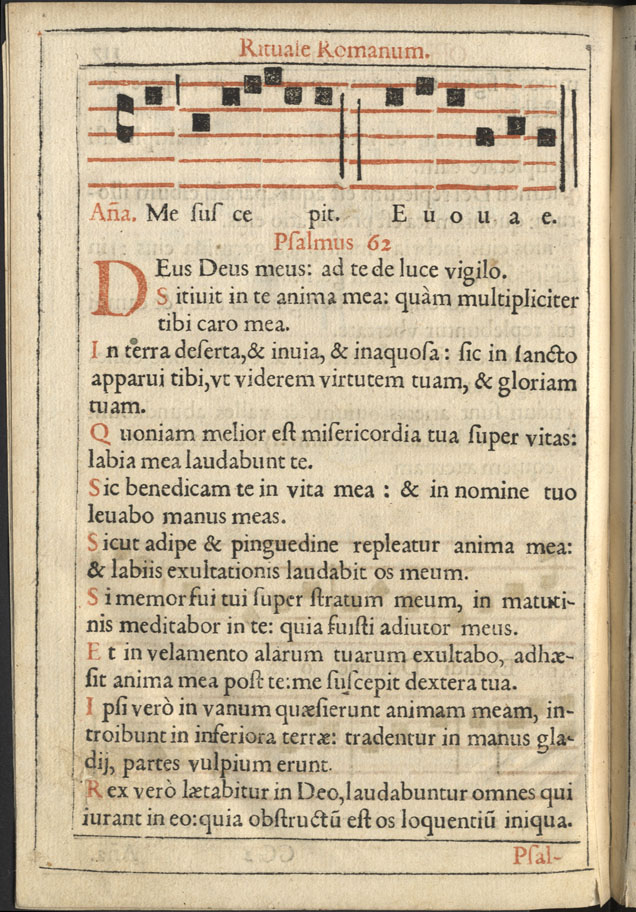 Rituale Romanum.
Aña. Me ſuſ ce pit. E u o u a e.
Pſalmus 62
DEus Deus meus: ad te de luce vigilo.
Sitiuit in te anima mea: quàm multipliciter
tibi caro mea.
In terra deſerta,& inuia, & inaquoſa: ſic in ſancto
apparui tibi,vt viderem virtutem tuam, & gloriam
tuam.
Quoniam melior eſt miſericordia tua ſuper vitas:
labia mea laudabunt te.
Sic benedicam te in vita mea : & in nomine tuo
leuabo manus meas.
Sicut adipe & pinguedine repleatur anima mea:
& labiis exultationis laudabit os meum.
Si memor fui tui ſuper ſtratum meum, in matuti-
nis meditabor in te: quia fuiſti adiutor meus.
Et in velamento alarum tuarum exultabo, adhæ-
ſit anima mea poſt te:me ſuſcepit dextera tua.
Ipſi verò in vanum quæſierunt animam meam, in-
troibunt in inferiora terræ: tradentur in manus gla-
dij, partes vulpium erunt.
Rex verò lætabitur in Deo,laudabuntur omnes qui
iurant in eo:quia obſtructũ eſt os loquentiũ iniqua.
Pſal-